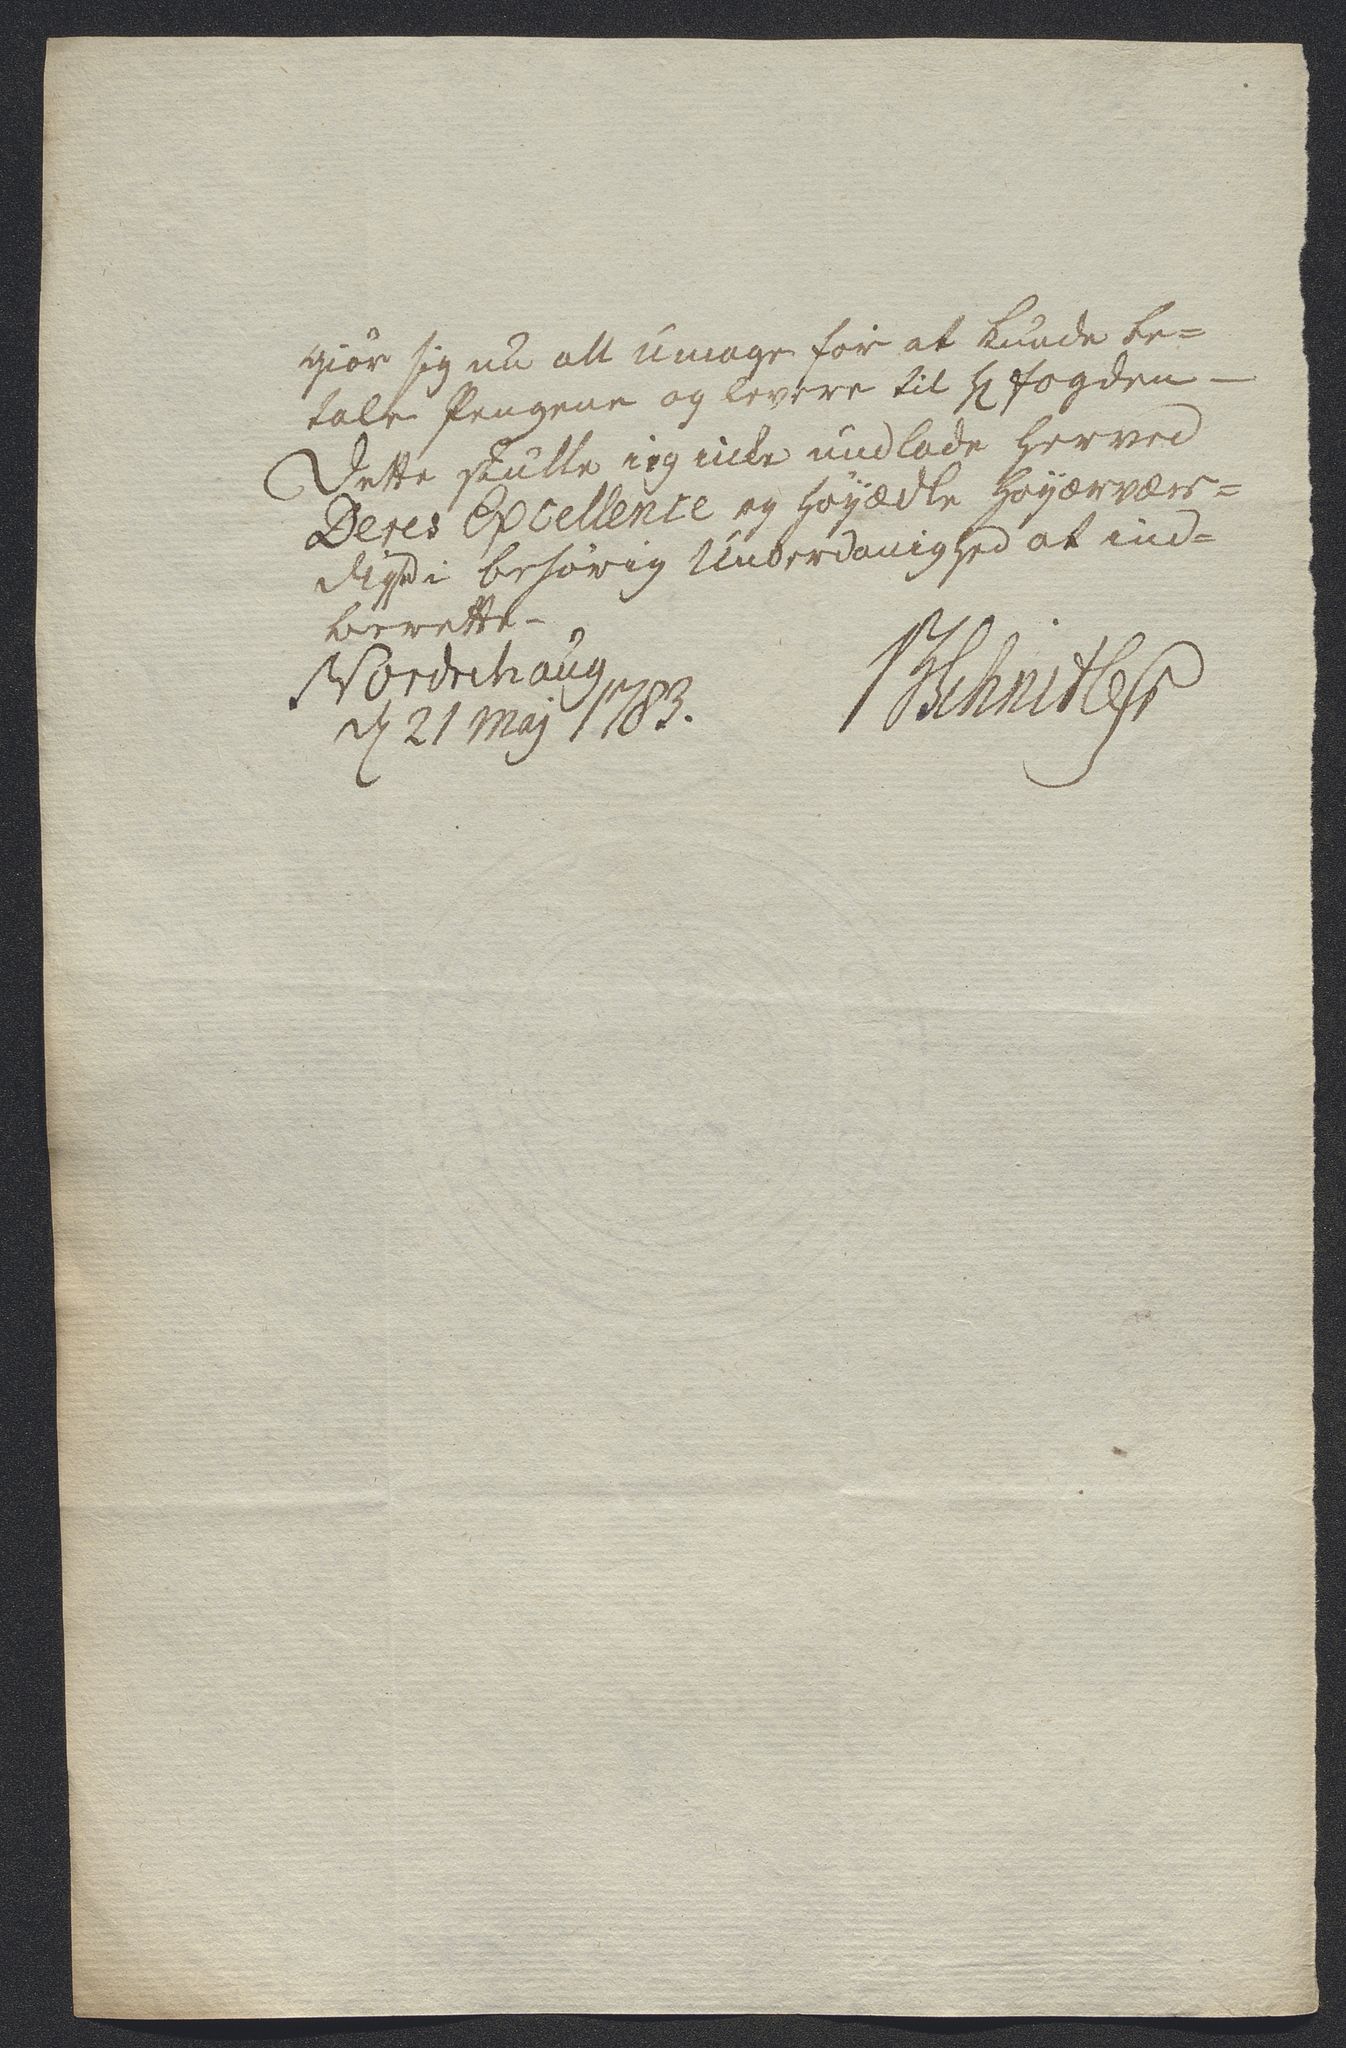 giør sig nu all umage for at kunde be=
tale Pengene og levere til H Fogden —
Dette skulle ieg icke undlade herved
Deres Excellence og Høyædle Høyærvær=
dighed i behørig Underdanighed at ind=
berette –
Nordrehaug
d 21 Maj 1783.
Schnitler